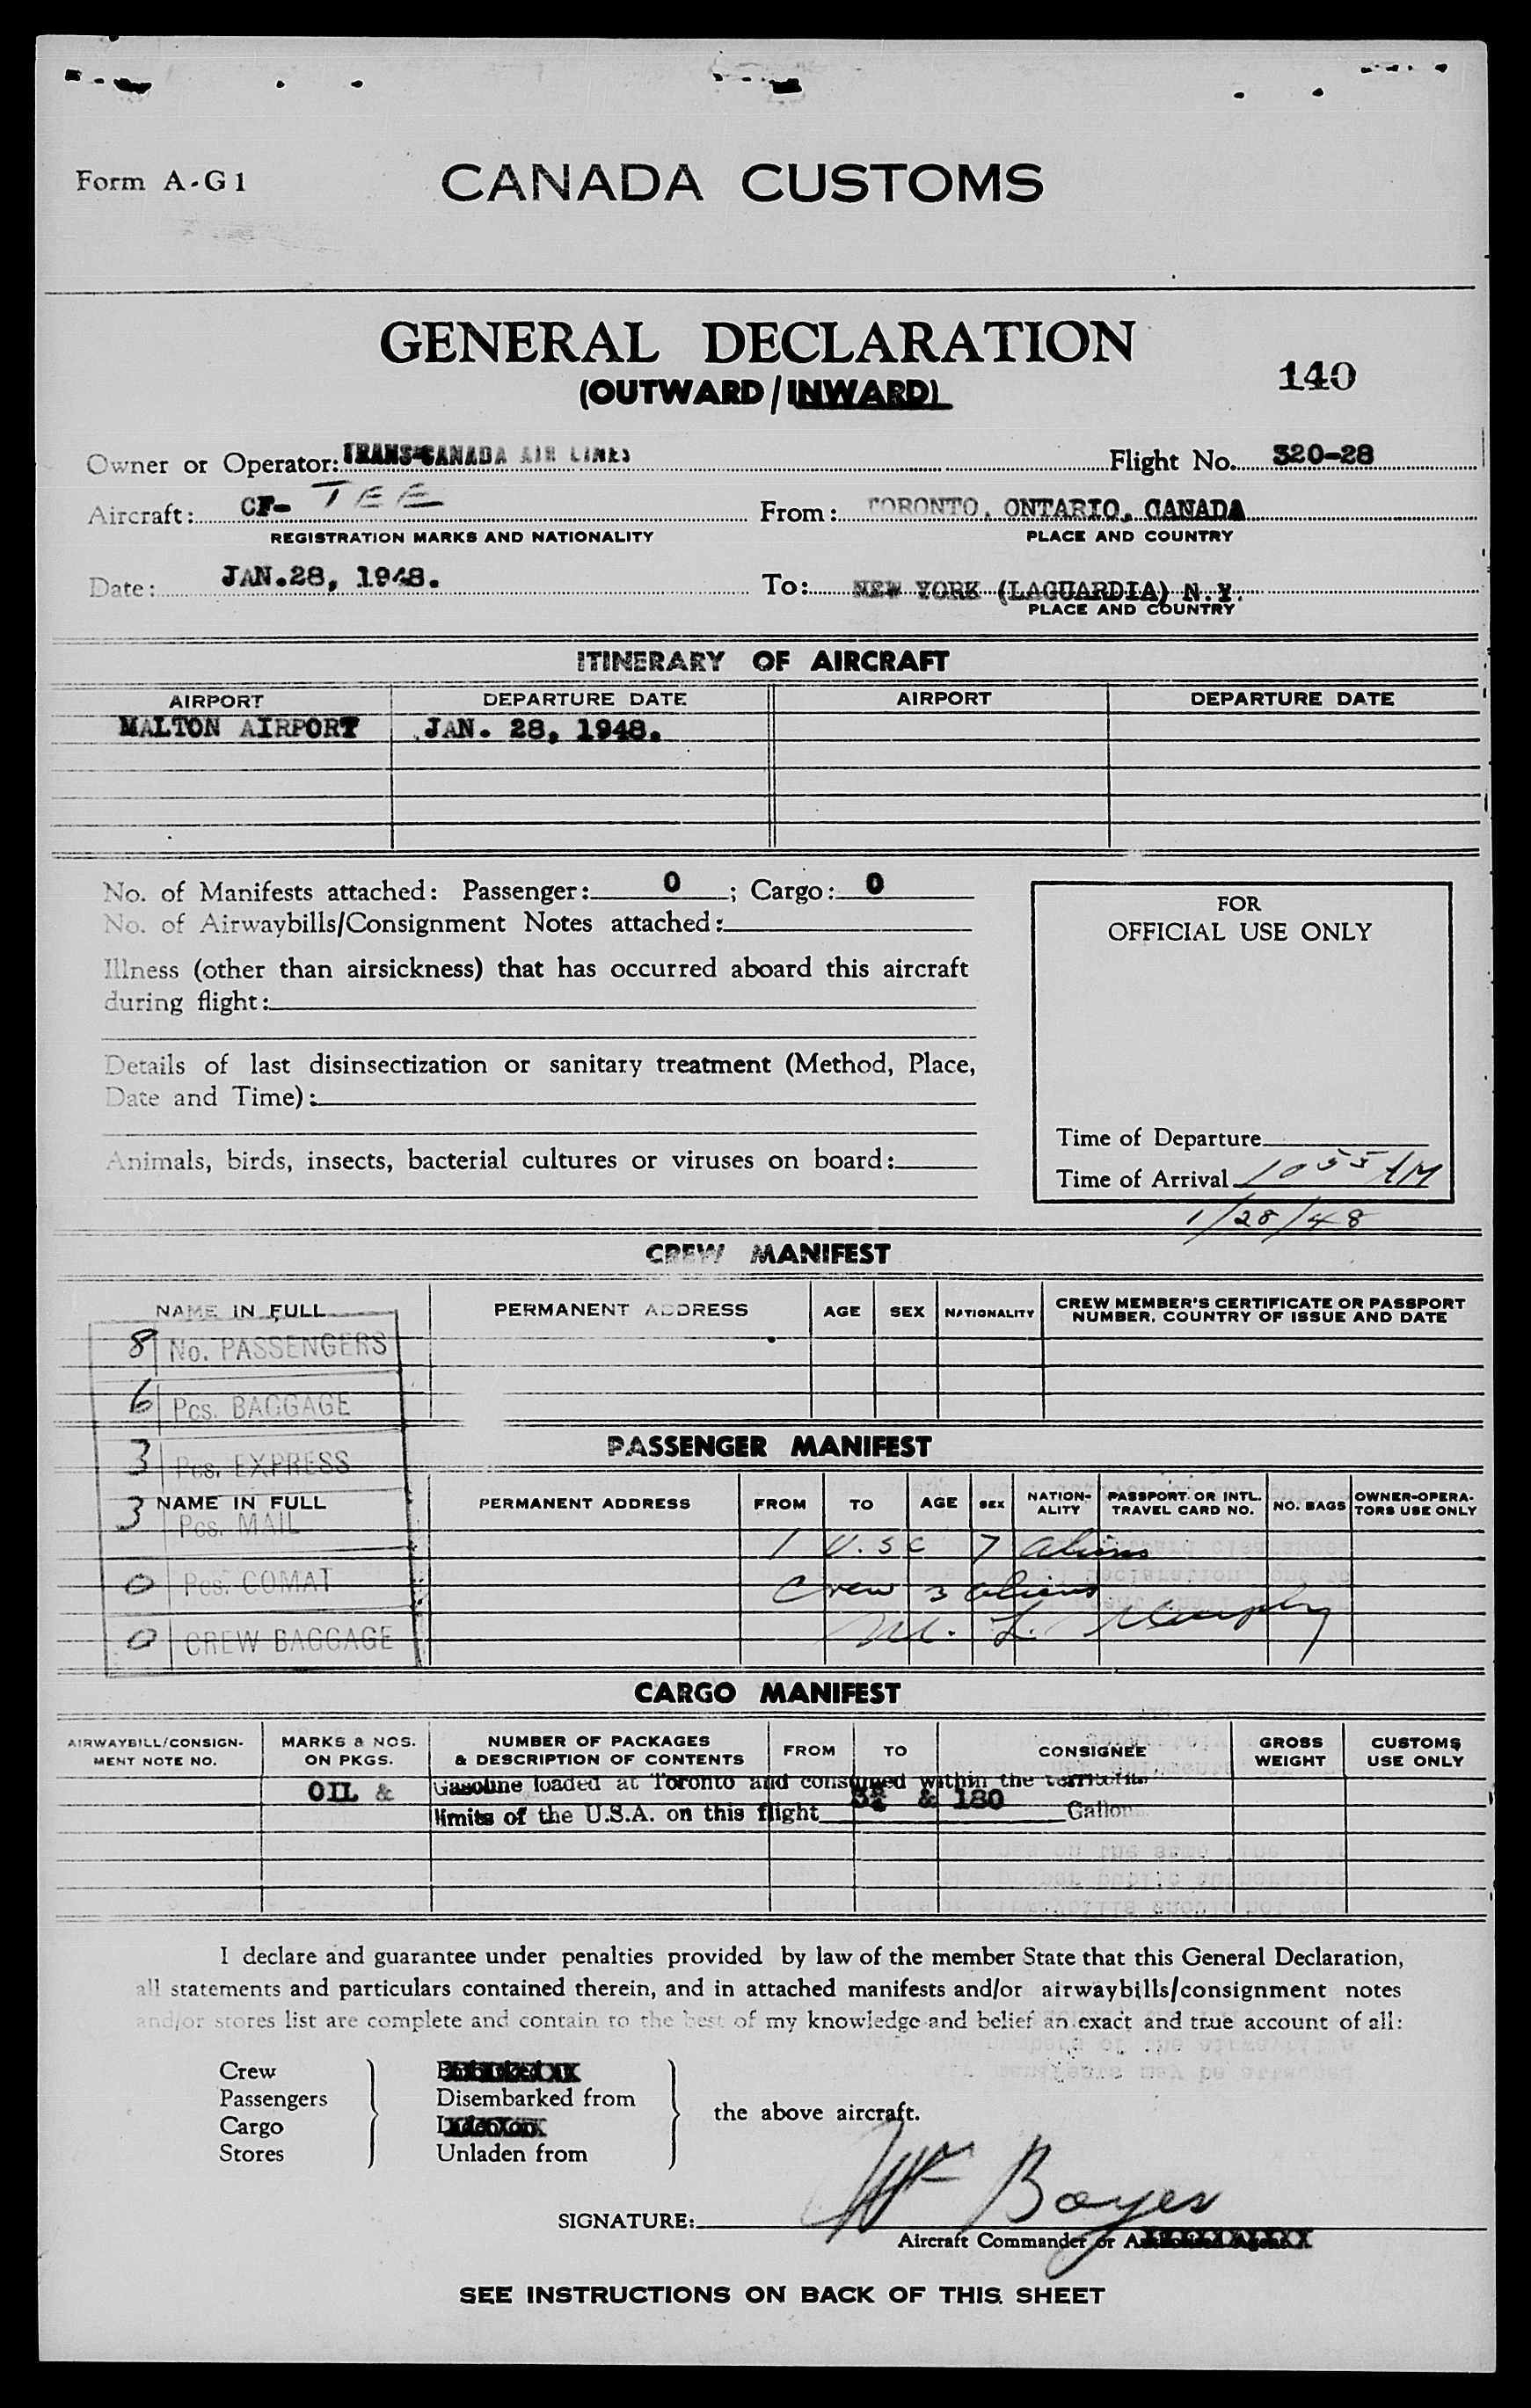 Form A-G1
CANADA CUSTOMS
GENERAL DECLARATION
(OUTWARD/INWARD)
140
Owner or Operator: TRANS-CANADA AIR LINES Flight No. 320-28
Aircraft: CF- TEE From: TORONTO, ONTARIO, CANADA
REGISTRATION MARKS AND NATIONALITY PLACE AND COUNTRY
Date: JAN.28, 1948. To: NEW YORK (LAGUARDIA) N.Y.
PLACE AND COUNTRY
ITINERARY OF AIRCRAFT
AIRPORT DEPARTURE DATE AIRPORT DEPARTURE DATE
MALTON AIRPORT JAN. 28, 1948.
No. of Manifests attached: Passenger: 0; Cargo: 0
No. of Airwaybills/Consignment Notes attached:
Illness (other than airsickness) that has occurred aboard this aircraft
during flight:
Details of last disinsectization or sanitary treatment (Method, Place,
Date and Time):
Animals, birds, insects, bacterial cultures or viruses on board:
FOR
OFFICIAL USE ONLY
Time of Departure
Time of Arrival 1055 AM
1/28/48
CREW MANIFEST
NAME IN FULL PERMANENT ADDRESS AGE SEX NATIONALITY CREW MEMBER'S CERTIFICATE OR PASSPORT
NUMBER, COUNTRY OF ISSUE AND DATE
8 No. PASSENGERS
6 Pcs. BAGGAGE
PASSENGER MANIFEST
3 Pcs. EXPRESS
NAME IN FULL PERMANENT ADDRESS FROM TO AGE SEX NATION-
ALITY PASSPORT OR INTL.
TRAVEL CARD NO. NO. BAGS OWNER-OPERA-
TORS USE ONLY
3 Pcs. MAIL
1 U.S C 7 aliens
0 Pcs. COMAT
Crew 3 aliens
M. L. Murphy
0 CREW BAGGAGE
CARGO MANIFEST
AIRWAYBILL/CONSIGN-
MENT NOTE NO. MARKS & NOS.
ON PKGS. NUMBER OF PACKAGES
& DESCRIPTION OF CONTENTS FROM TO CONSIGNEE GROSS
WEIGHT CUSTOMS
USE ONLY
OIL & Gasoline loaded at Toronto and consumed within the
limits of the U.S.A. on this flight & 180 Gallons
I declare and guarantee under penalties provided by law of the member State that this General Declaration,
all statements and particulars contained therein, and in attached manifests and/or airwaybills/consignment notes
and/or stores list are complete and contain to the best of my knowledge and belief an exact and true account of all:
Crew
Passengers
Cargo
Stores
Disembarked from
Unladen from
the above aircraft.
SIGNATURE: Boyes
Aircraft Commander or
SEE INSTRUCTIONS ON BACK OF THIS SHEET